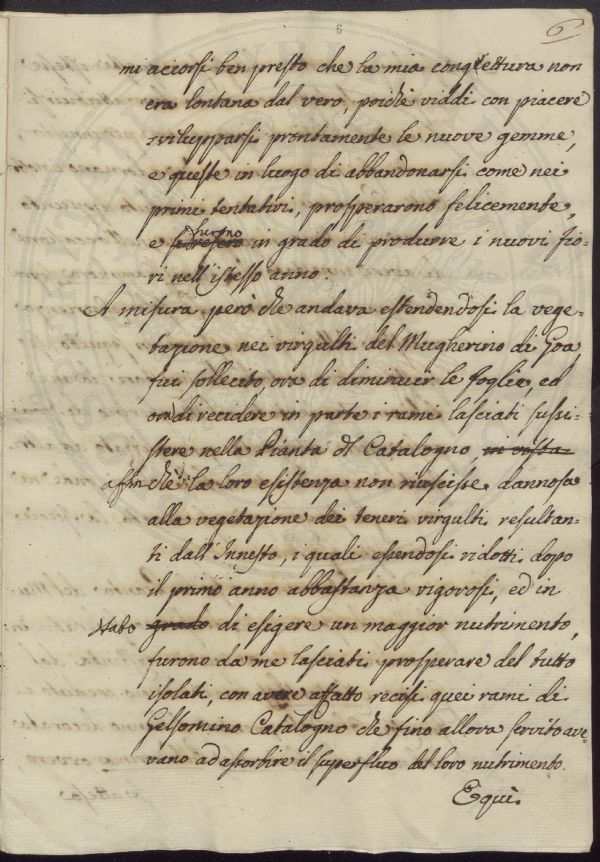 6
6
mi accorsi ben presto che la mia congettura non
era lontana dal vero, poichè viddi con piacere
svilupparsi prontamente le nuove gemme,
e queste in luogo di abbandonarsi come nei
primi tentativi, prosperarono felicemente,
furono
e si resero in grado di produrre i nuovi fio-
ri nell'istesso anno.
A misura però che andava estendendosi la vege-
tazione nei virgulti del Mugherino di Goa,
fui sollecito, ora di diminuir le foglie, ed
ora di recidere in parte i rami lasciati sussi-
stere nella Pianta di Catalogno,
affinchè la loro esistenza non riuscisse dannosa
alla vegetazione dei teneri virgulti resultan-
ti dall'Innesto, i quali essendosi ridotti dopo
il primo anno abbastanza vigorosi, ed in
stato grado di esigere un maggior nutrimento,
furono da me lasciati prosperare del tutto
isolati, con avere affatto recisi quei rami di
Gelsomino Catalogno che fino allora servito ave-
vano ad assorbire il superfluo del loro nutrimento.
E quì